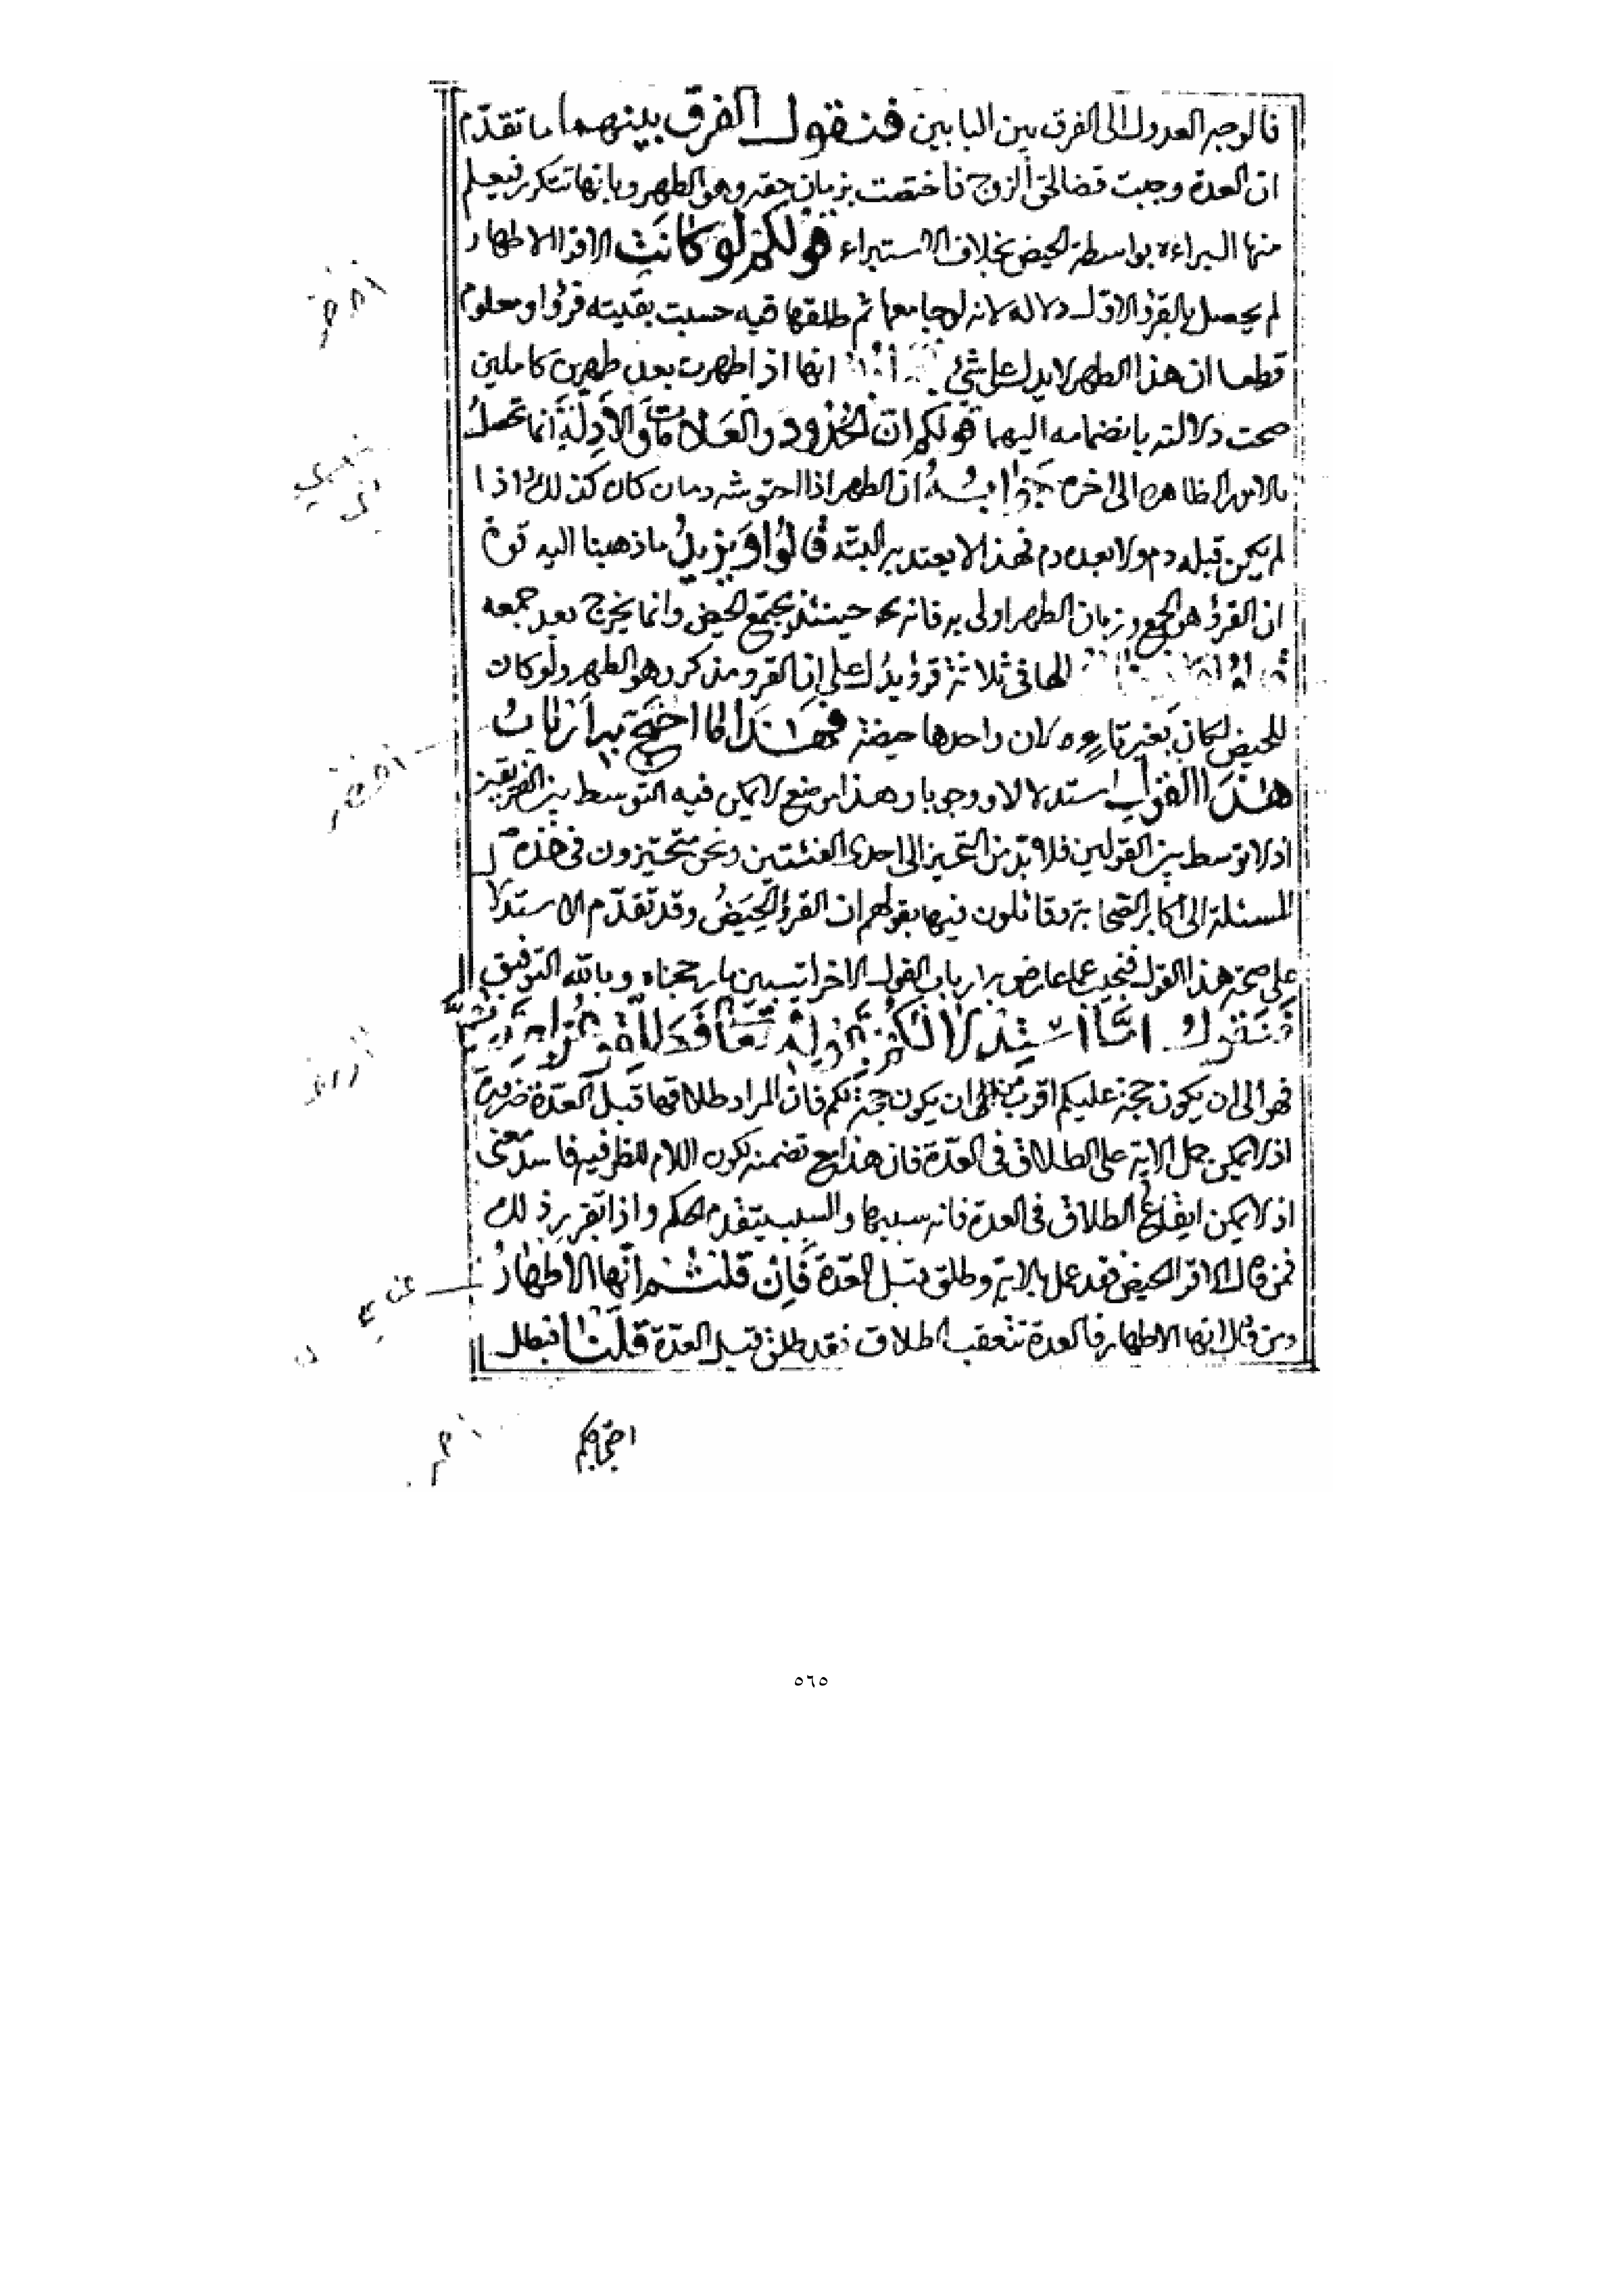 فالوجه العدول الى الفرق بين البابين فنقول الفرق بينهما ما تقدّم
ان العدة وجبت قضا لحق الزوج فاختصت بزمان حقه وهو الطهر وبانها تتكرر فيعلم
منها البراءه بواسطة الحيض بخلاف الاستبراء قولكم لو كانت الاقرا الاطهار
لم يحصل بالقرؤ الاول دلاله لانه لو جامعها ثم طلقها فيه حسبت بقيته قرؤا ومعلوم
قطعا ان هذا الطهر لا يدل على شئ انها اذا طهرت بعد طهرين كاملين
صحت دلالته بانضمامه اليهما قولكم ان الحدود والعلامات والأدلة انما تحصل
بالامر الظاهر الى اخره جوابه ان الطهر اذا احتوشه دمان كان كذلك اذا
لم يكن قبله دم ولا بعده دم فهذا لا يعتد به البتّه قالوا ويزيل ما ذهبنا اليه قوة
ان القرؤ هو الجمع وزمان الطهر اولى به فانه حينئذ يجتمع الحيض وانما يخرج بعد جمعه
الها فى ثلاثة قرؤ يدل على ان القرو مذكر وهو الطهر ولو كان
للحيض لكان بغير تاء لان واحدها حيضة فهذا ما احتج به ارباب
هذا القول استدلالا وجوبا وهذا موضع لا يمكن فيه التوسط بين الفريقين
اذ لا توسط بين القولين فلا بد من التحيز الى احدى الفئتين ونحن متحيزون فى هذه
المسئلة الى اكابر الصحابة وقائلون فيها بقولهم ان القرؤ الحيض وقد تقدم الاستدلا
على صحة هذا القول فنجيب عما عارض به ارباب القول الاخر ليتبين ما رجحناه وبالله التوفيق
فنقول اما استدلالكم بقوله تعا
فهو الى ان يكون حجة عليكم اقرب منه الى ان يكون حجة لكم فان المراد طلاقها قبل العدة ضرورة
اذ لا يمكن حمل الاية على الطلاق فى العدة فان هذا مع تضمنه لكون اللام للظرفيه فاسد معنى
اذ لا يمكن ايقاع الطلاق فى العدة فانه سببها والسبب يتقدم الحكم واذا تقرر ذلك
فمن قال الاقرا الحيض فقد عمل بالاية وطلق قبل العدة فان قلتم انها الاطهار
ومن قال انها الاطهار فالعدة تتعقب الطلاق فقد طلق قبل العدة قلنا فبطل
احتجاجكم
٥٦٥